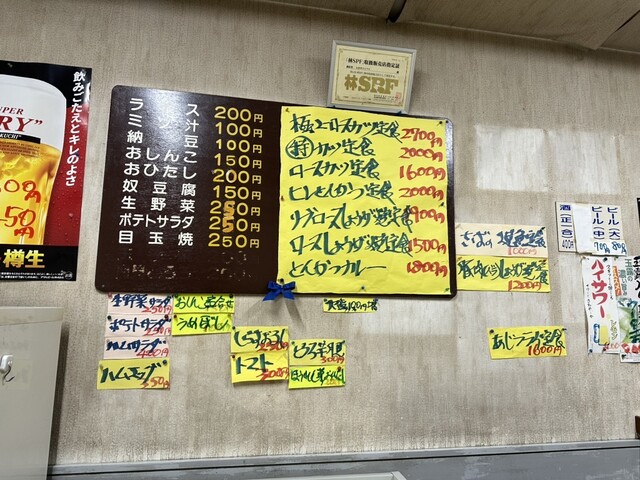 (林SPF)取扱販売店指定証
林SPF
飲みごたえとキレのよさ
SUPER
樽生
ライス 200円
ミソ汁 100円
納豆 100円
おしんこ 150円
おひたし 200円
奴豆腐 150円
生野菜 250円
ポテトサラダ 250円
目玉焼 250円
極上ロースカツ定食 2700円
特カツ定食 2000円
ロースカツ定食 1600円
ヒレとんかつ定食 2000円
リブロースしょうが焼定食 1900円
ロースしょうが焼定食 1500円
とんかつカレー 1800円
さばの塩焼定食 1000円
豚肉しょうが定食 1200円
あじフライ定食 1600円
生野菜サラダ 250円
ポテトサラダ 250円
ハムサラダ 400円
ハムエッグ 350円
おしんこ盛合せ
うめぼし
しらすおろし 250円
トマト 300円
酒(正一合) 400円
ビール(中)
ビール(大)
ハイサワー